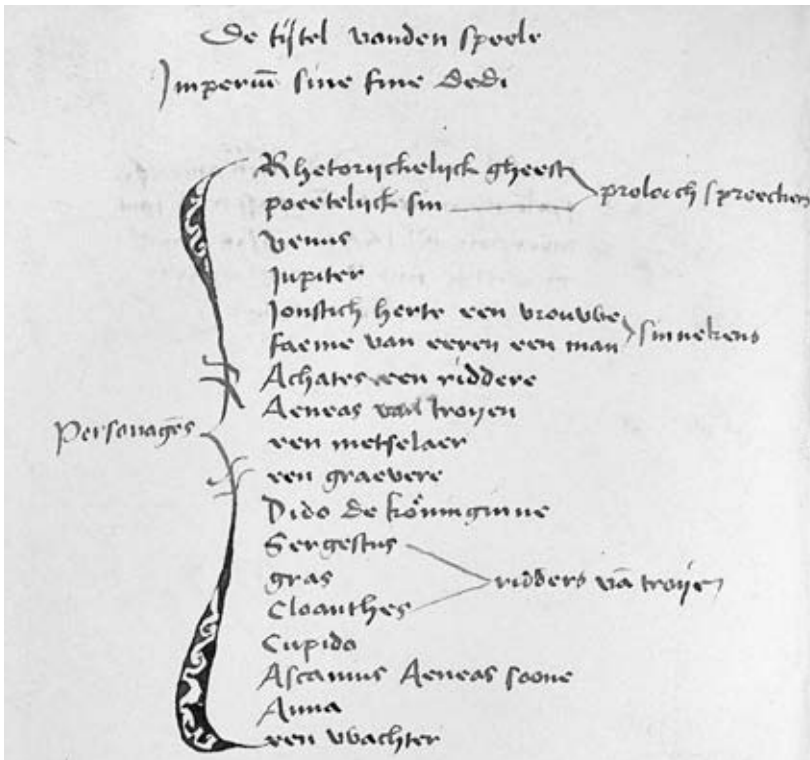 De tijtel vanden speele
Imperiū sine fine dedi
Rhetorijckelijck gheest
poeetelijck sin
proloich spreecken
venus
Jupiter
Jonstich herte een vrouwe
faeme van eeren een man
sinnekens
Achates een riddere
Aeneas van troyen
Personagēs
een metselaer
een graevere
Dido de köninginne
Sergestus
gras
ridders vā troijen
Cloanthes
Cupido
Ascanius Aeneas soone
Anna
een wachter